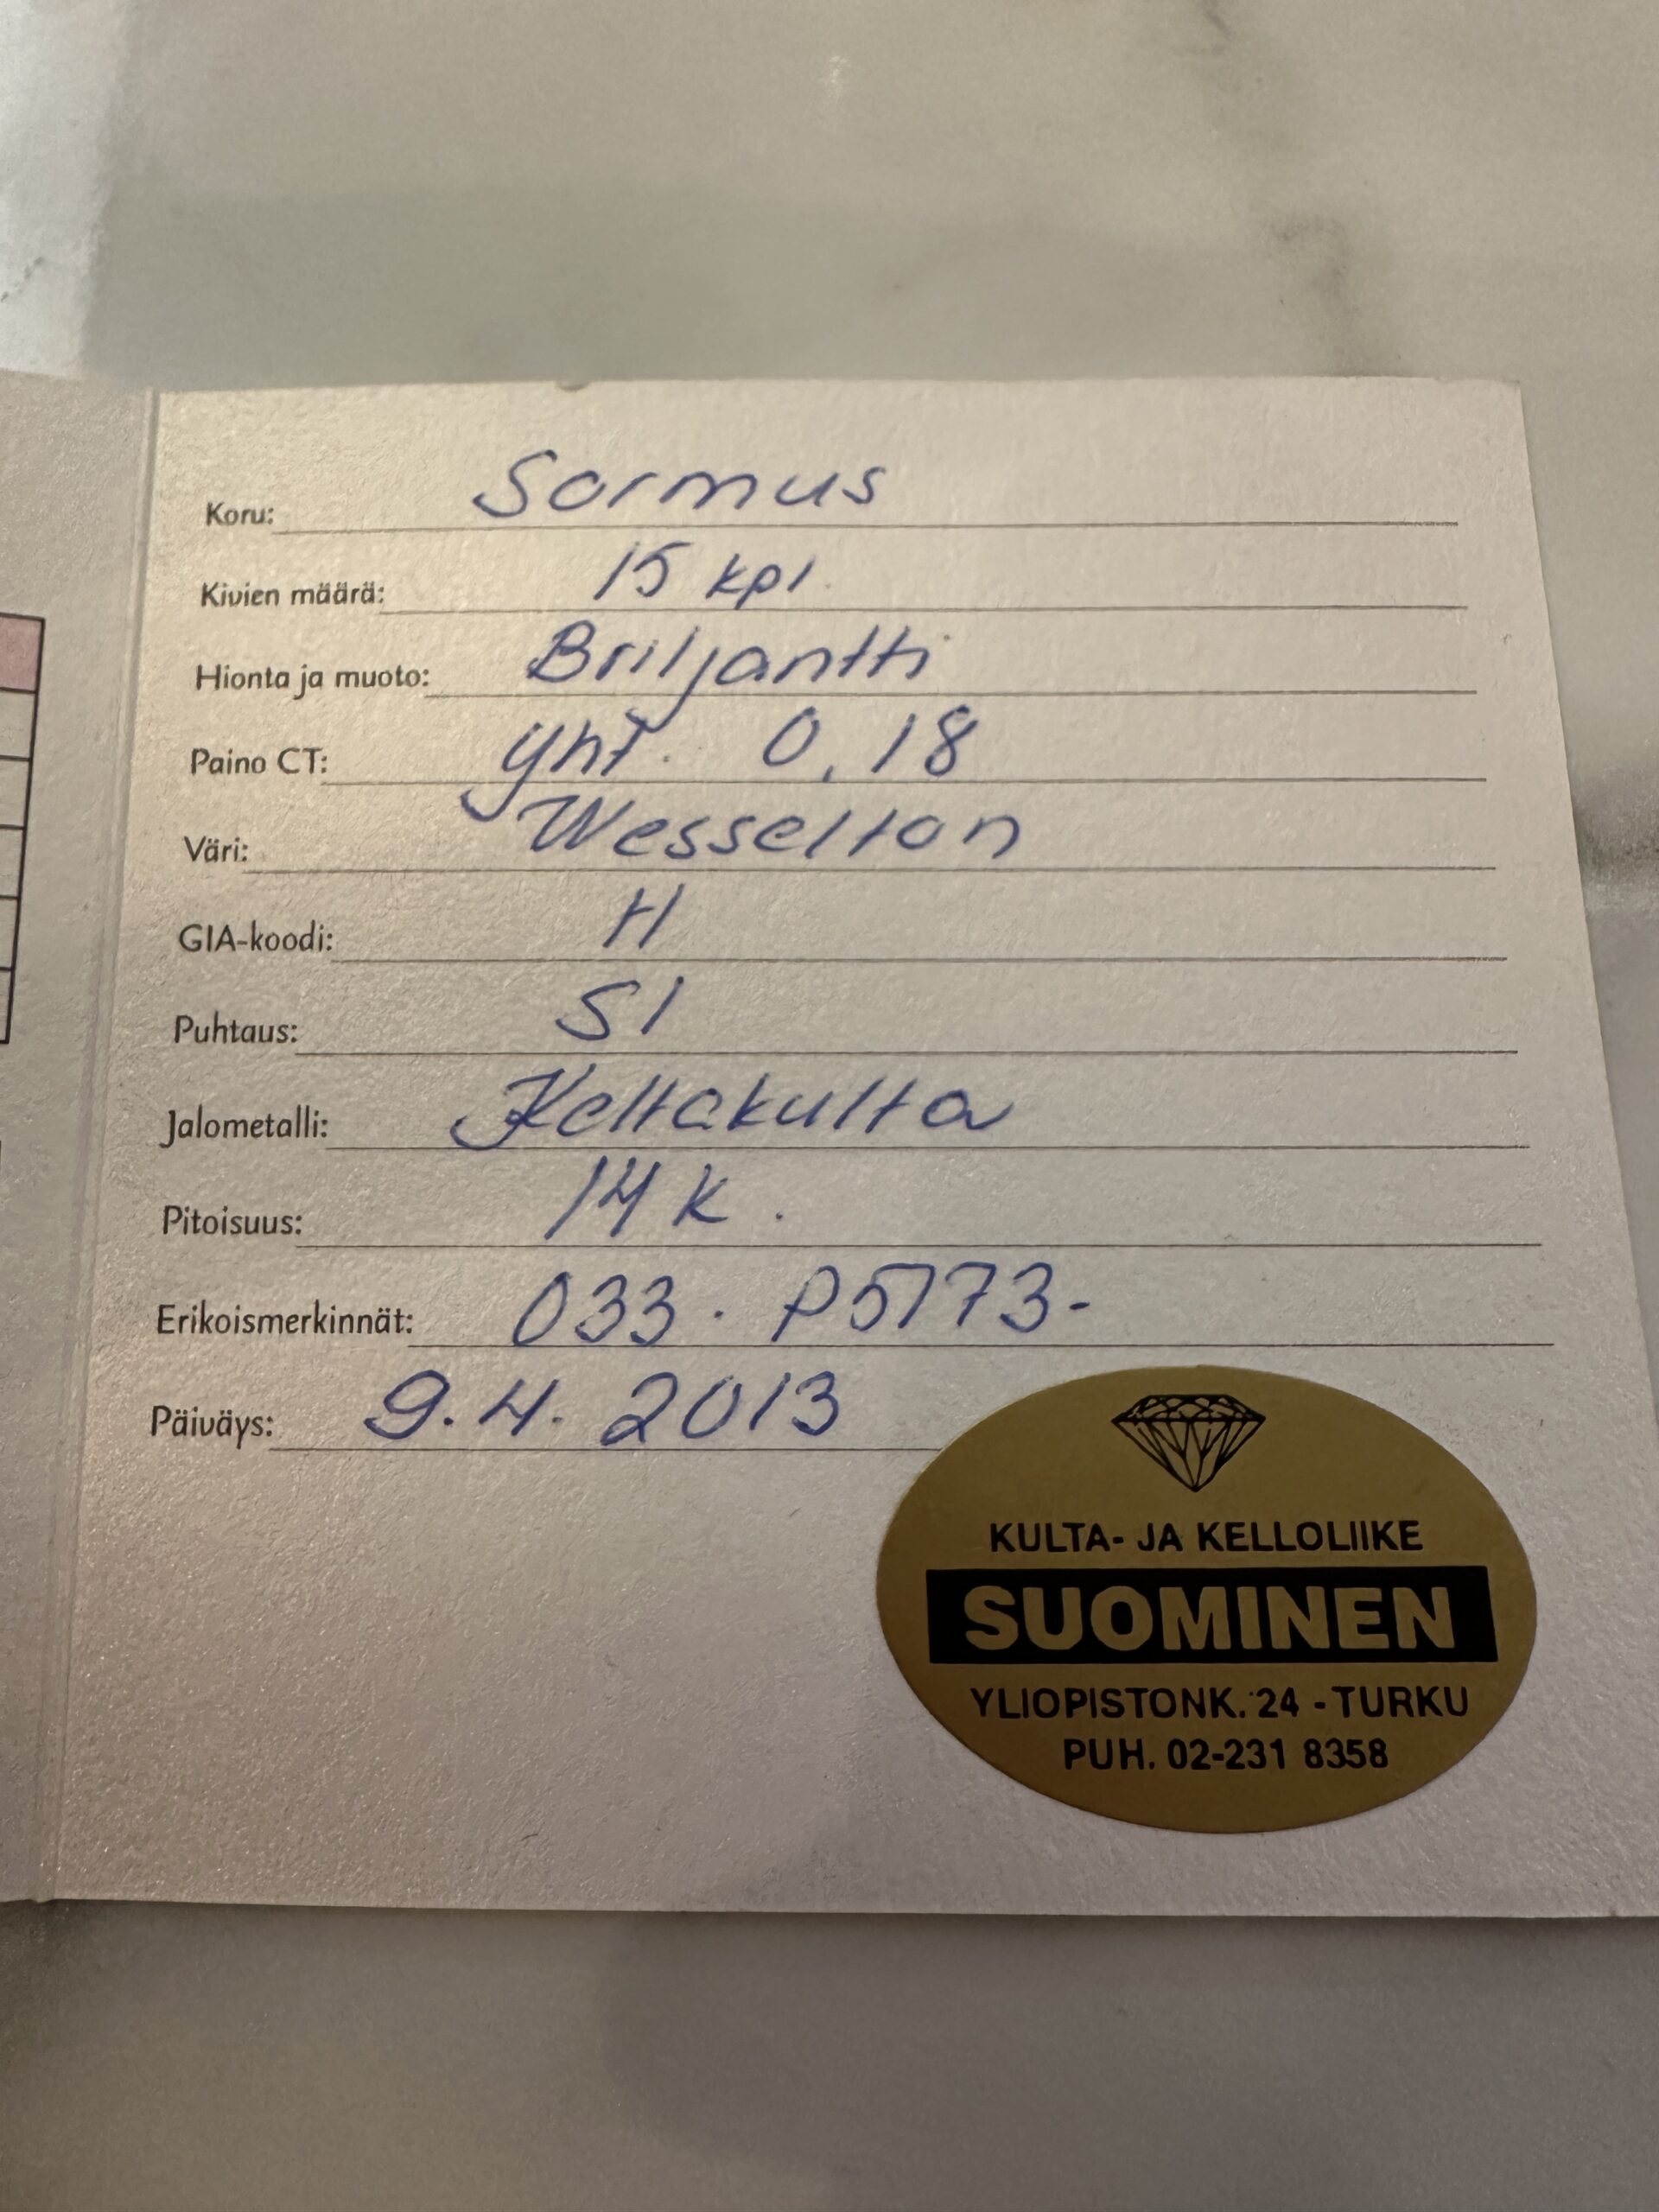 Koru: Sormus
Kivien määrä: 15 kpl.
Hionta ja muoto: Briljantti
Paino CT: yht. 0,18
Väri: Wesselton
GIA-koodi: H
Puhtaus: SI
Jalometalli: Keltakulta
Pitoisuus: 14 K.
Erikoismerkinnät: 033. P5173-
Päiväys: 9.4.2013
KULTA- JA KELLOLIIKE
SUOMINEN
YLIOPISTONK. 24 - TURKU
PUH. 02-231 8358